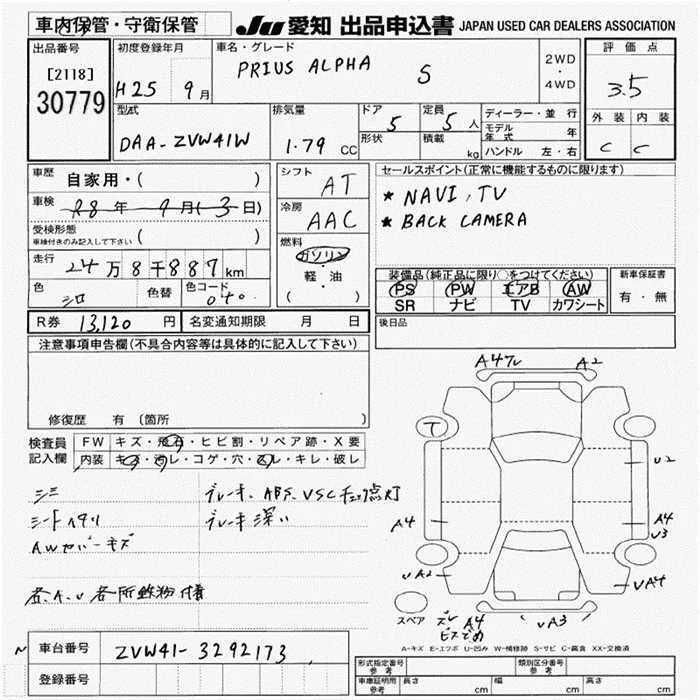 車内保管・守衛保管
JU 愛知 出品申込書 JAPAN USED CAR DEALERS ASSOCIATION
出品番号
[2118]
30779
初度登録年月
H25 9月
車名・グレード
PRIUS ALPHA S
2WD
・
4WD
評価点
3.5
外装 内装
C C
型式
DAA-ZVW41W
排気量
1.79 CC
ドア
5
形状
定員
5人
積載
kg
ディーラー・並行
モデル年式 年
ハンドル 左・右
車歴
自家用・( )
車検 R8年 9月(3日)
受検形態
車検付きのみ記入して下さい ( )
走行
24万8千887km
色
シロ
色替
色コード
040
シフト
AT
冷房
AAC
燃料
ガソリン
・
軽・油
( )
セールスポイント(正常に機能するものに限ります)
* NAVI, TV
* BACK CAMERA
装備品(純正品に限り○をつけてください)
PS PW エアB AW
SR ナビ TV カワシート
新車保証書
有・無
R券 13,120円
名変通知期限 月 日
後日品
注意事項申告欄(不具合内容等は具体的に記入して下さい)
修復歴 有(箇所 )
検査員
記入欄
FW キズ・飛石・ヒビ割・リペア跡・X要
内装 キズ・汚レ・コゲ・穴・スレ・キレ・破レ
シミ
シートヘタリ
AWカバーキズ
ブレーキ、ABS、VSCチェック点灯
ブレーキ深い
各A.U 各所鉄粉付着
A4ワレ
A2
T
U2
A4
A4
U3
UA2
UA4
スペア
ズレ A4
ビスどめ
UA3
A-キズ E-エクボ U-凹み W-補修跡 S-サビ C-腐食 XX-交換済
車台番号 ZVW41-3292173
登録番号
形式指定番号
参考
類別区分番号
参考
車庫証明用
参考
長さ cm 幅 cm 高さ cm